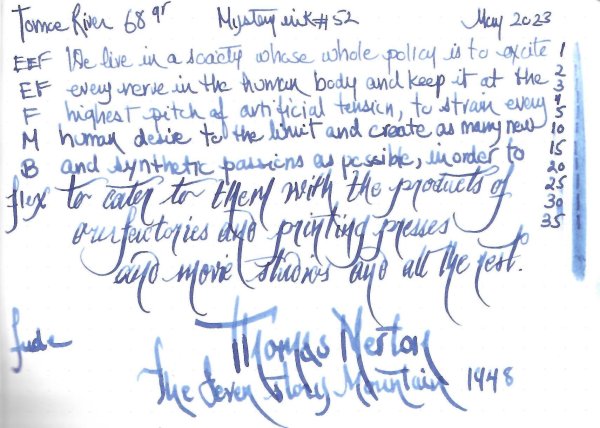 Tomoe River 68 gr Mystery ink #52 May 2023
EEF We live in a soacity whose whole policy is to excite 1
EF every nerve in the human body and keep it at the 2 3
F highest pitch of artificial tension, to strain every 4 5
M human desire to the limit and create as many new 10
B and synthetic passions as possible, in order to 15 20
flex to cater to them with the products of 25
our factories and printing presses 30 35
and movie studios and all the rest.
fude Thomas Merton
The Seven Story Mountain 1948